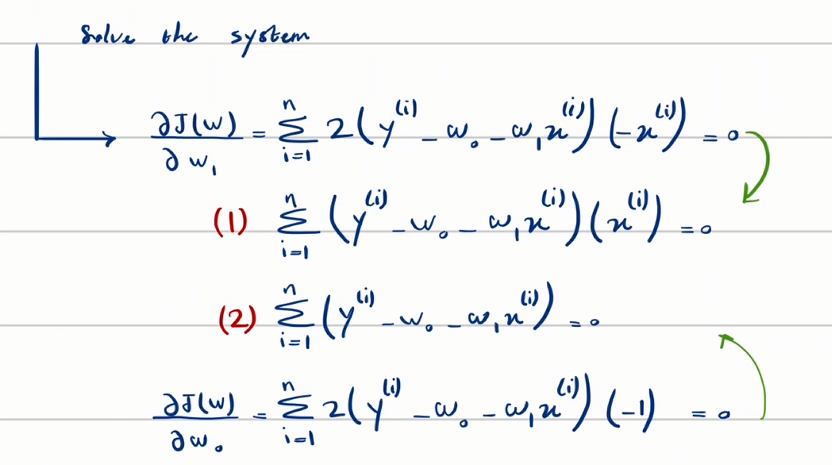 Solve the system
∂J(w)/∂w₁ = Σᵢ₌₁ⁿ 2(y⁽ⁱ⁾ - w₀ - w₁x⁽ⁱ⁾)(-x⁽ⁱ⁾) = 0
(1) Σᵢ₌₁ⁿ (y⁽ⁱ⁾ - w₀ - w₁x⁽ⁱ⁾)(x⁽ⁱ⁾) = 0
(2) Σᵢ₌₁ⁿ (y⁽ⁱ⁾ - w₀ - w₁x⁽ⁱ⁾) = 0
∂J(w)/∂w₀ = Σᵢ₌₁ⁿ 2(y⁽ⁱ⁾ - w₀ - w₁x⁽ⁱ⁾)(-1) = 0